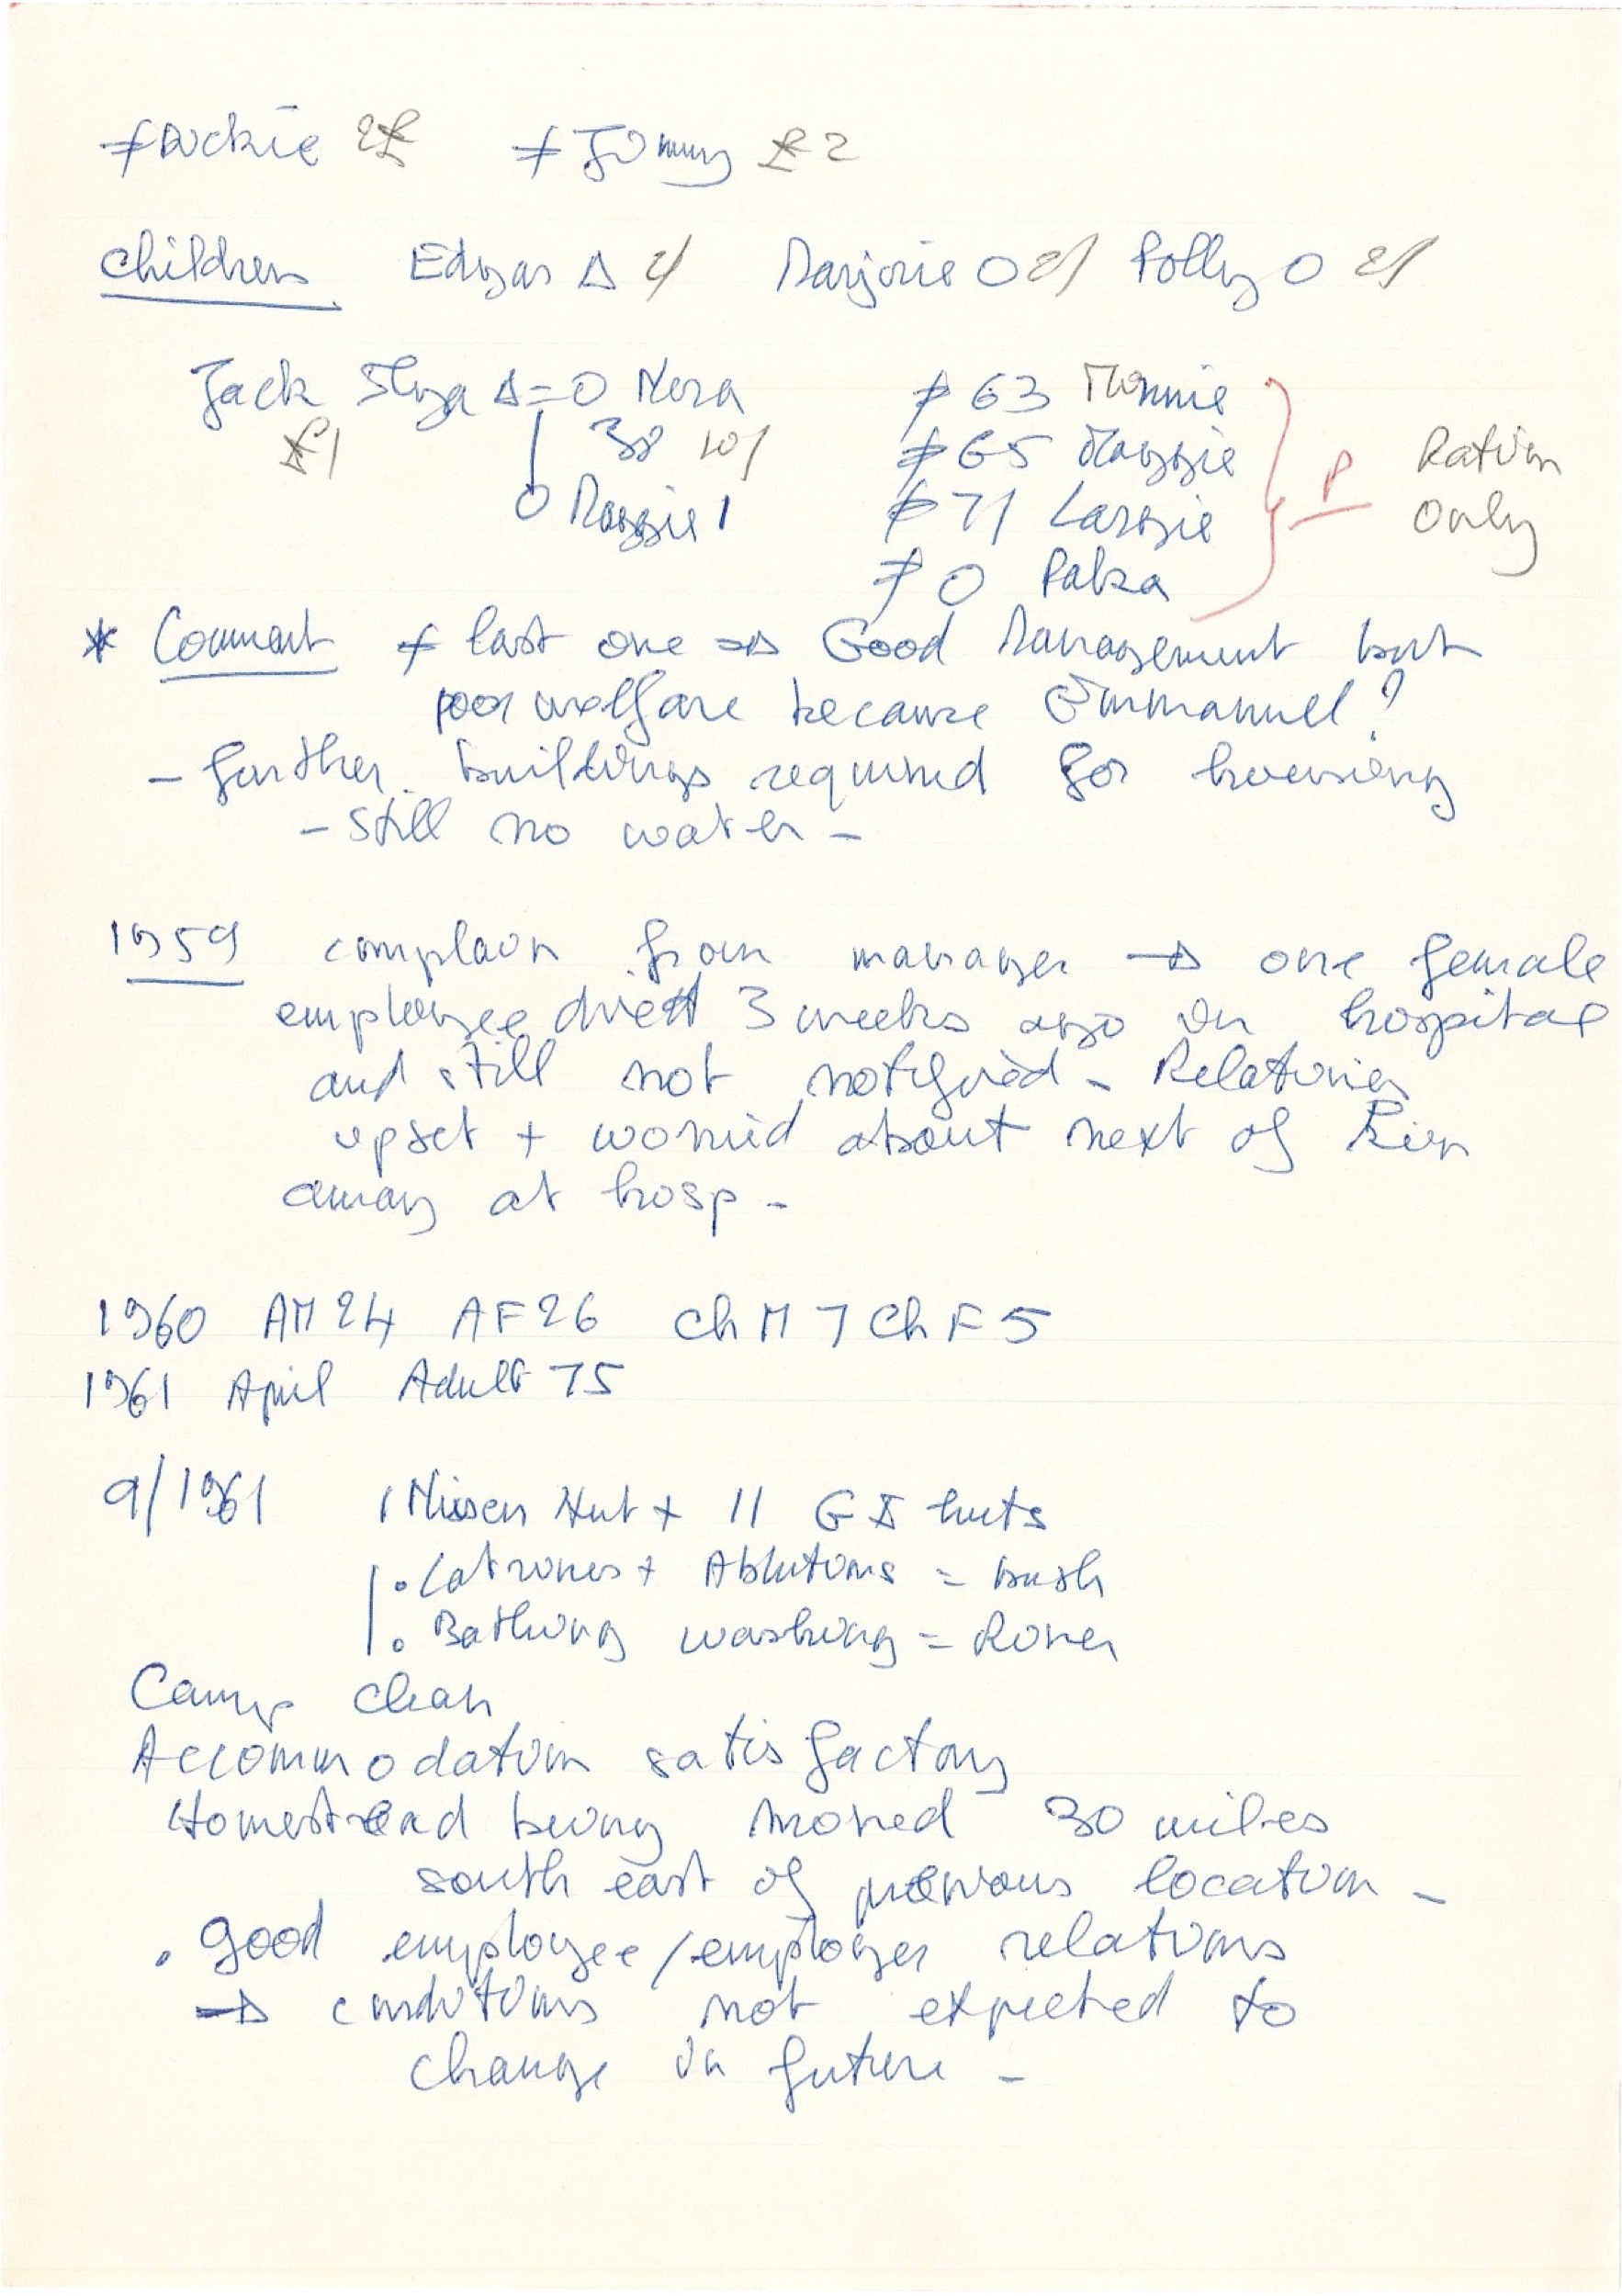 ≠ Dickie 2£ ≠ Jimmy £2
Children Edgar Δ 2/ Marjorie O 2/ Polly O 2/
Jack Δ = O Nora ≠ 63 Minnie
£1 38 10/ ≠ 65 Maggie P Ration
O Maggie 1 ≠ 71 Lassie only
≠ O
* Comment ≠ last one → Good Management but
poor welfare because Emmanuel?
- further buildings required for housing
- still no water -
1959 complain from manager → one female
employee died 3 weeks ago in hospital
and still not notified - Relatives
upset + worried about next of Kin
away at hosp -
1960 AM 24 AF 26 Ch M 7 Ch F 5
1961 April Adult 75
9/1961 1 Nissen Hut + 11 GI huts
. Latrines + Ablutions = bush
. Bathing washing = River
Camp clean
Accommodation satisfactory
Homestead being moved 30 miles
south east of previous location -
. good employee/employer relations
→ conditions not expected to
change in future -